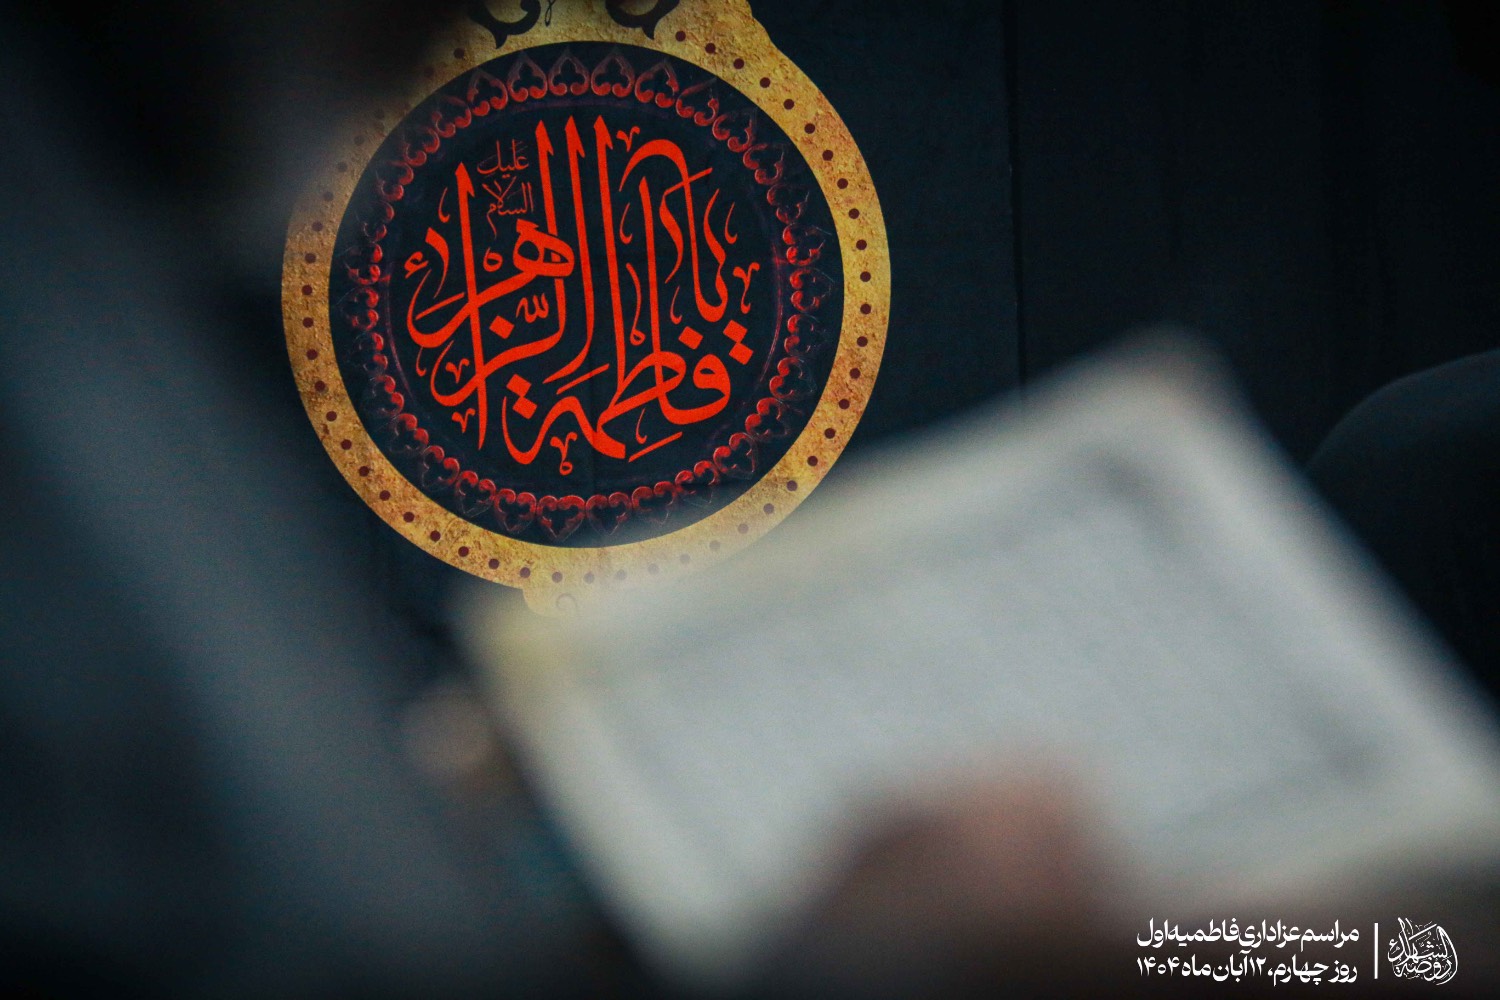 یا فاطمة الزهراء
علیك السلام
مراسم عزاداری فاطمیه اول
روز چهارم، ۱۲ آبان ماه ۱۴۰۴
روضة الشهداء